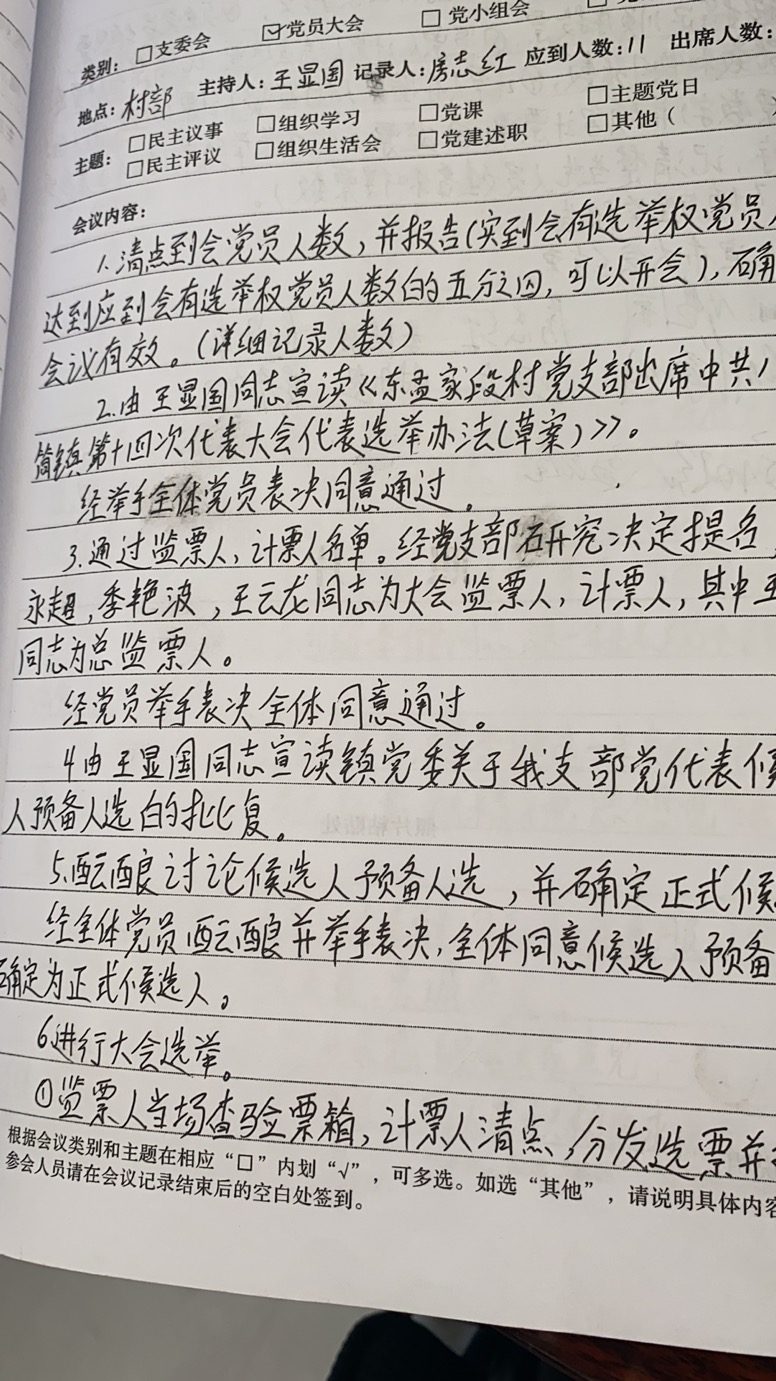 类别：□支委会 ☑党员大会 □党小组会
地点：村部 主持人：王显国 记录人：房志红 应到人数：11 出席人数：
主题：□民主议事 □组织学习 □党课 □主题党日
□民主评议 □组织生活会 □党建述职 □其他（
会议内容：
1.清点到会党员人数，并报告（实到会有选举权党员人
达到应到会有选举权党员人数的五分之四，可以开会），确
会议有效。（详细记录人数）
2.由王显国同志宣读《东孟家段村党支部出席中共
简镇第十四次代表大会代表选举办法（草案）》。
经举手全体党员表决同意通过。
3.通过监票人，计票人名单。经党支部研究决定提名，
永超，李艳波，王云龙同志为大会监票人，计票人，其中王
同志为总监票人。
经党员举手表决全体同意通过。
4由王显国同志宣读镇党委关于我支部党代表候
人预备人选的批复。
5.酝酿讨论候选人预备人选，并确定正式候
经全体党员酝酿并举手表决，全体同意候选人预备
确定为正式候选人。
6进行大会选举。
①监票人当场查验票箱，计票人清点，分发选票并
根据会议类别和主题在相应“□”内划“√”，可多选。如选“其他”，请说明具体内容
参会人员请在会议记录结束后的空白处签到。